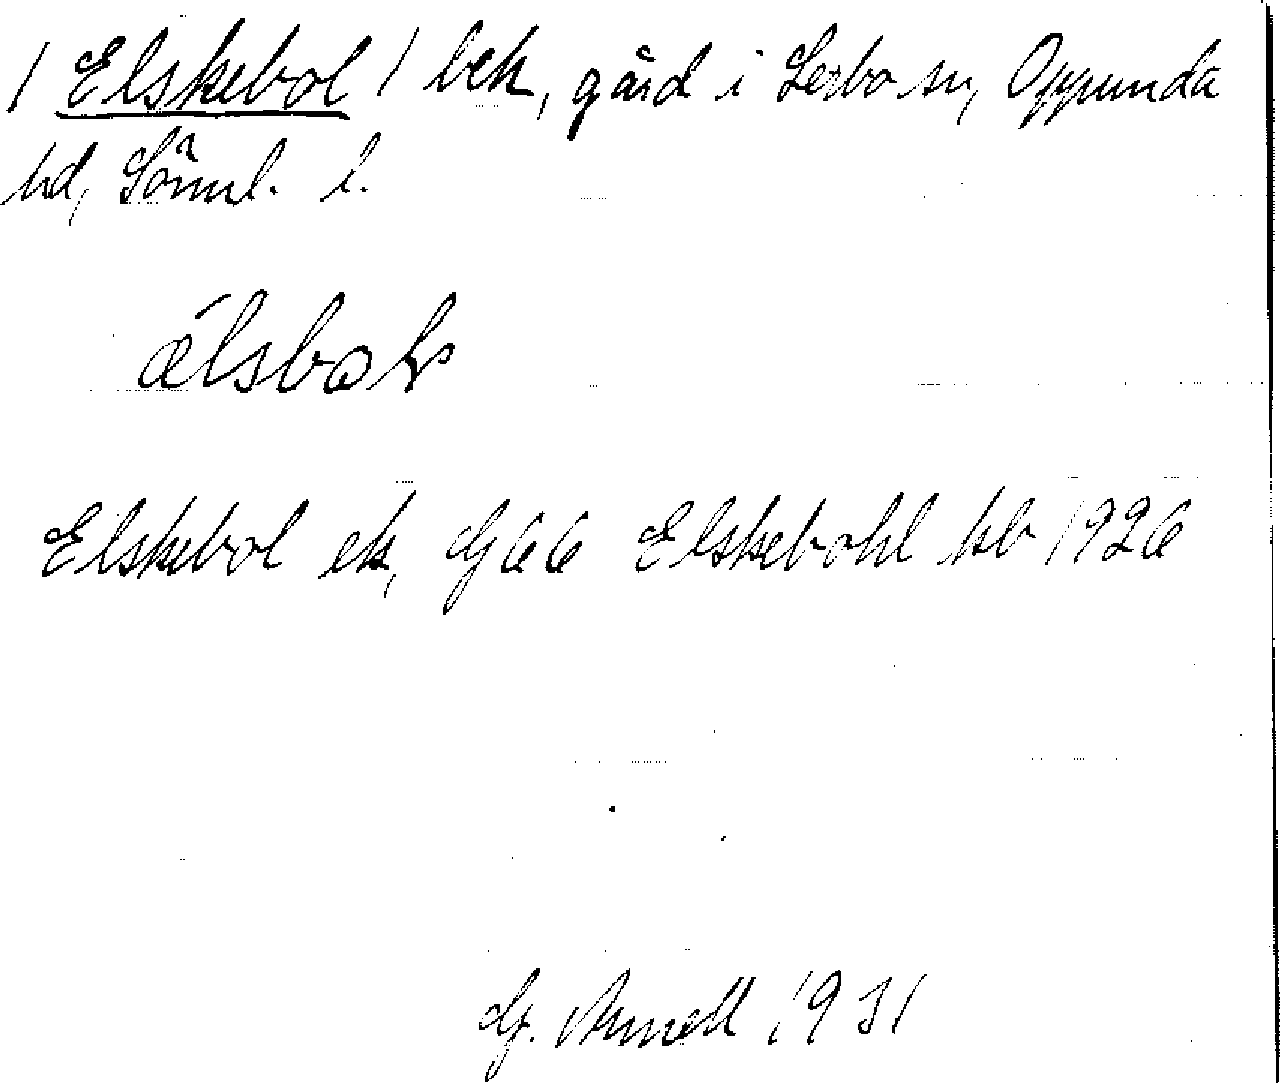 / Elskebol / bek, gård i Lerbo sn, Oppunda
hd, Sörml. l.
ælsbok
Elskebol ek, Gj 66 Elskebohl kb 1926
G. Arnell 1931